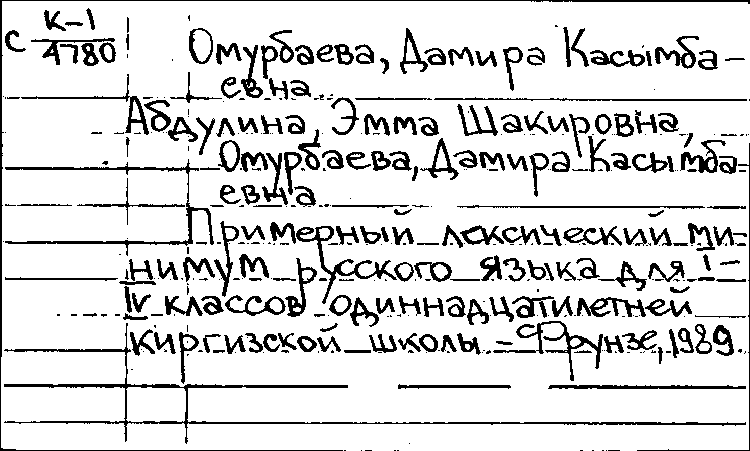 с К-1
4780
Омурбаева, Дамира Касымба-
евна
Абдулина, Эмма Шакировна,
Омурбаева, Дамира Касымба-
евна
Примерный лексический ми-
нимум русского языка для I-
IV классов одиннадцатилетней
киргизской школы - Фрунзе, 1989.